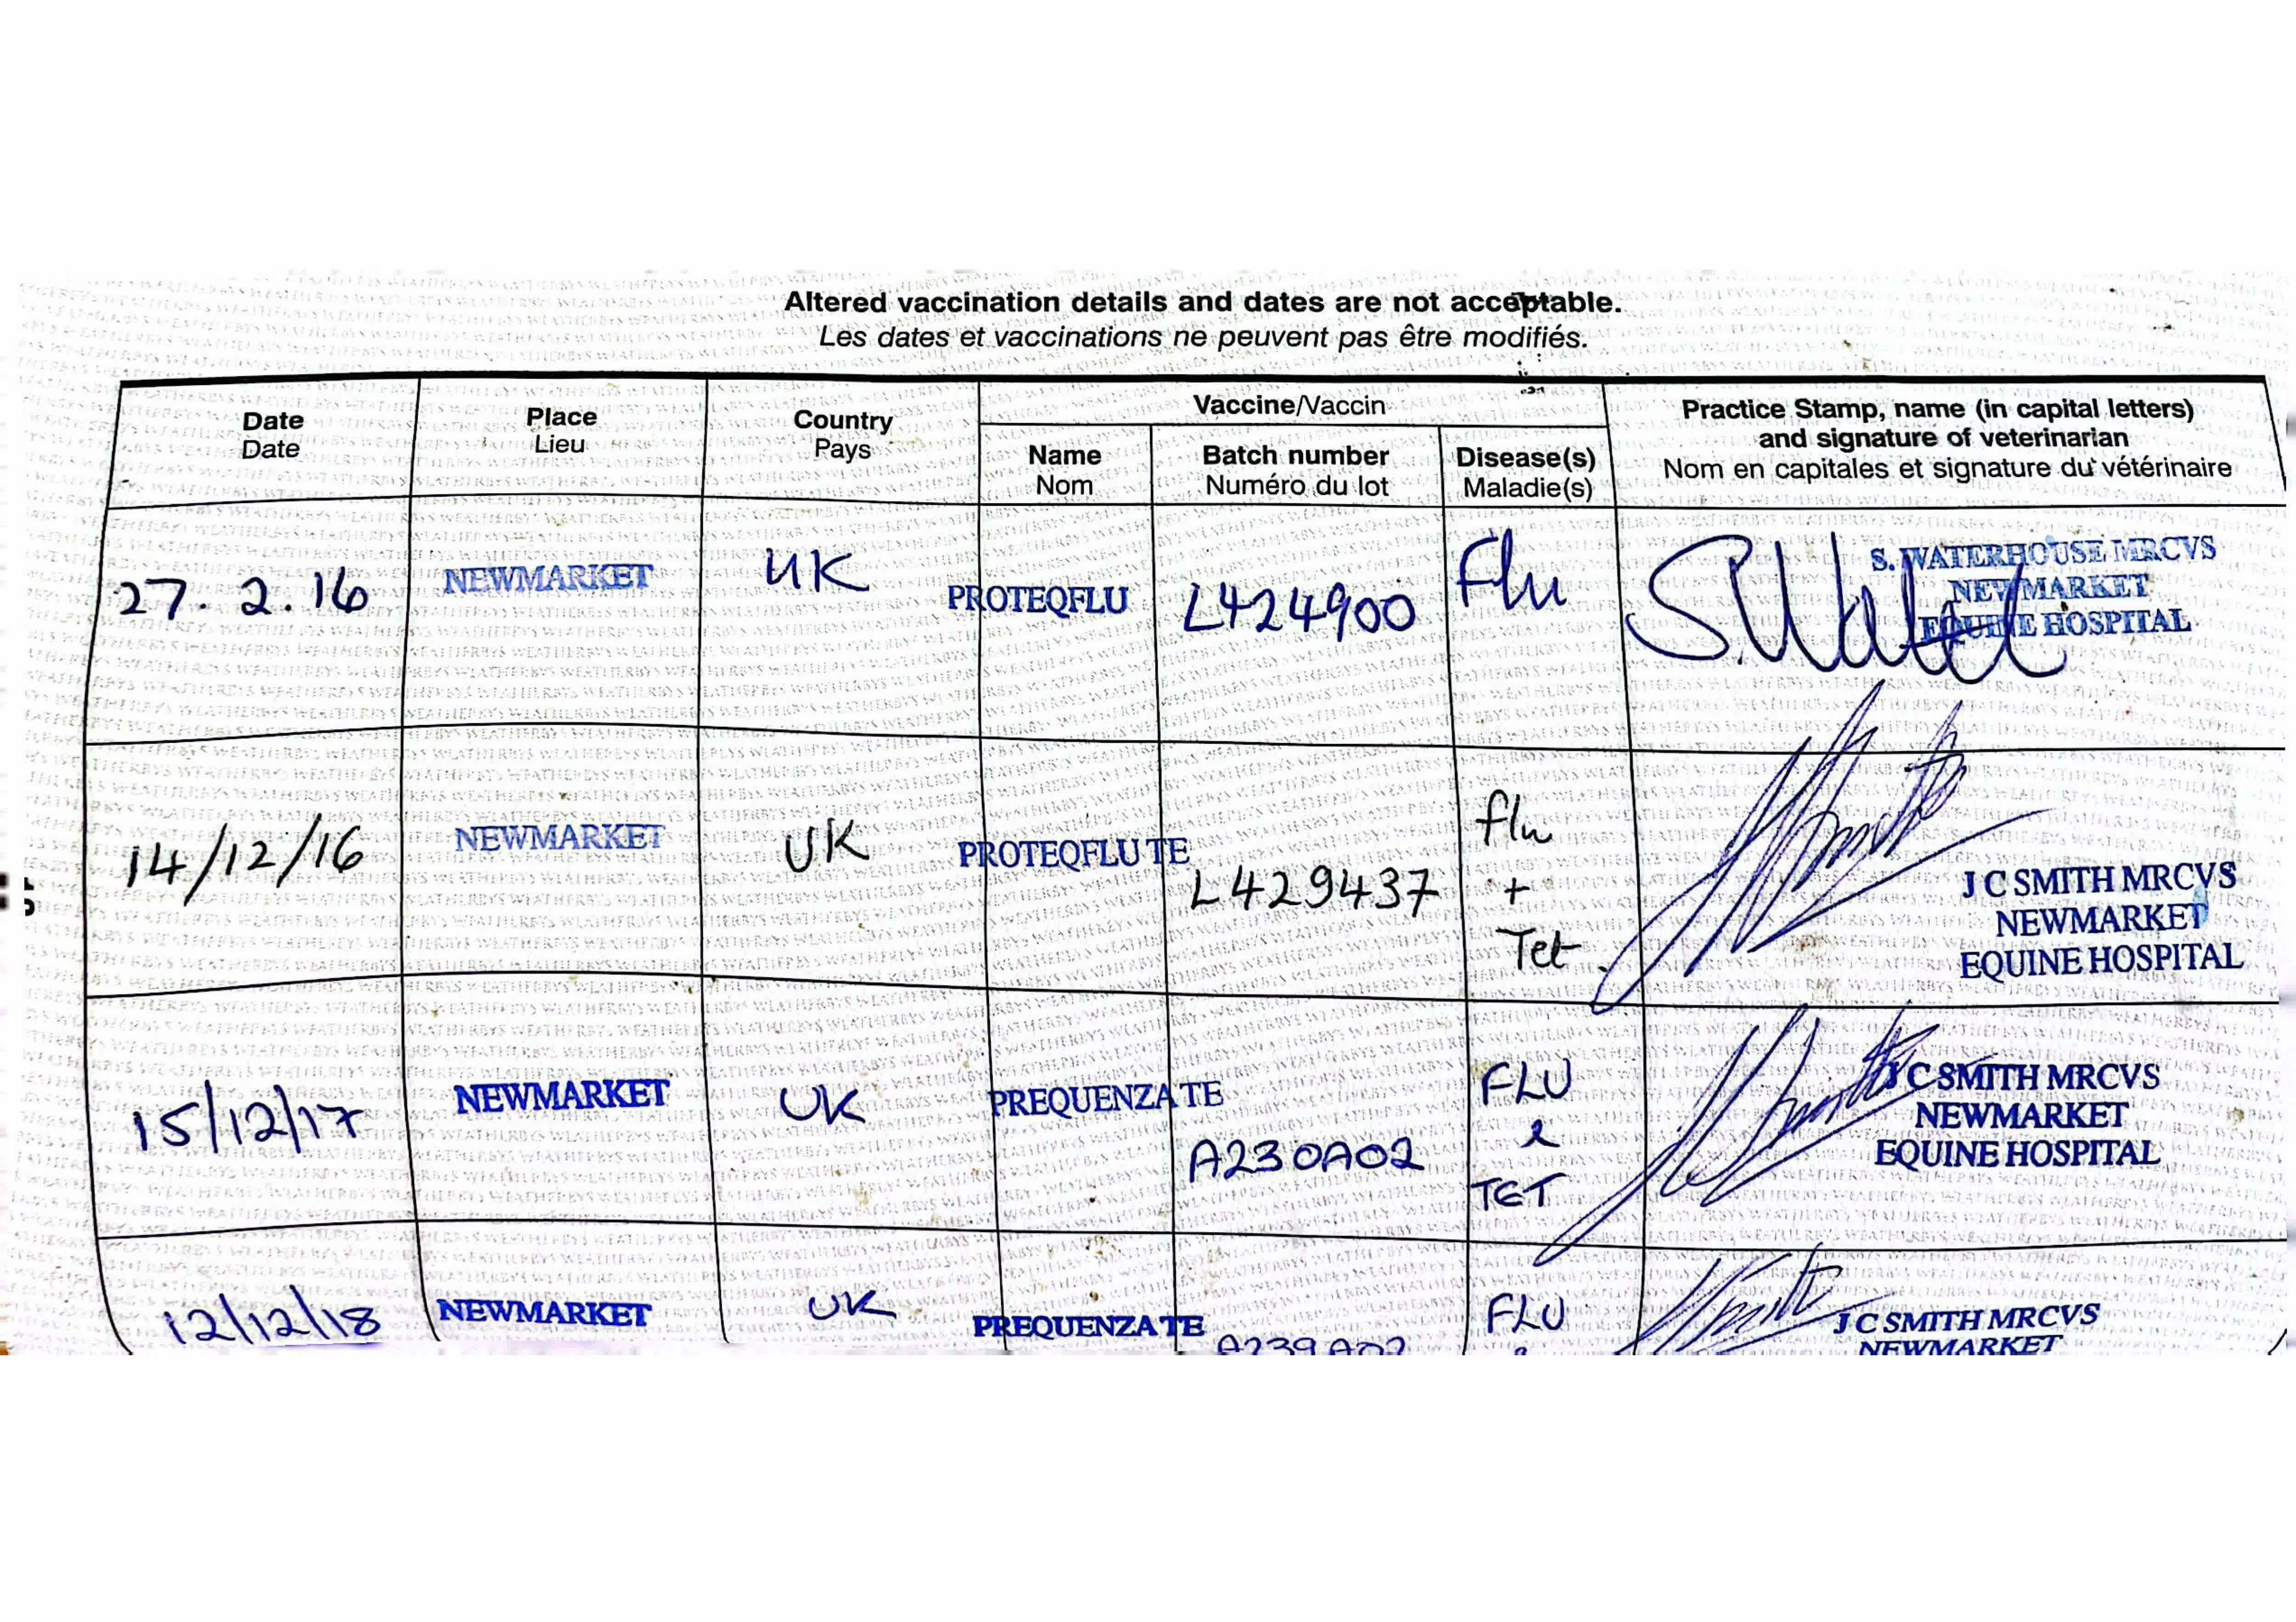 Altered vaccination details and dates are not acceptable.
Les dates et vaccinations ne peuvent pas être modifiés.
Date
Date
Place
Lieu
Country
Pays
Vaccine/Vaccin
Name
Nom
Batch number
Numéro du lot
Disease(s)
Maladie(s)
Practice Stamp, name (in capital letters)
and signature of veterinarian
Nom en capitales et signature du vétérinaire
27. 2. 16
NEWMARKET
UK
PROTEQFLU
L424900
Flu
S. WATERHOUSE MRCVS
NEWMARKET
EQUINE HOSPITAL
14/12/16
NEWMARKET
UK
PROTEQFLU TE
L429437
flu
+
Tet
J C SMITH MRCVS
NEWMARKET
EQUINE HOSPITAL
15/12/17
NEWMARKET
UK
PREQUENZA TE
A230A02
FLU
&
TET
J C SMITH MRCVS
NEWMARKET
EQUINE HOSPITAL
12/12/18
NEWMARKET
UK
PREQUENZA TE
A239A02
FLU
J C SMITH MRCVS
NEWMARKET